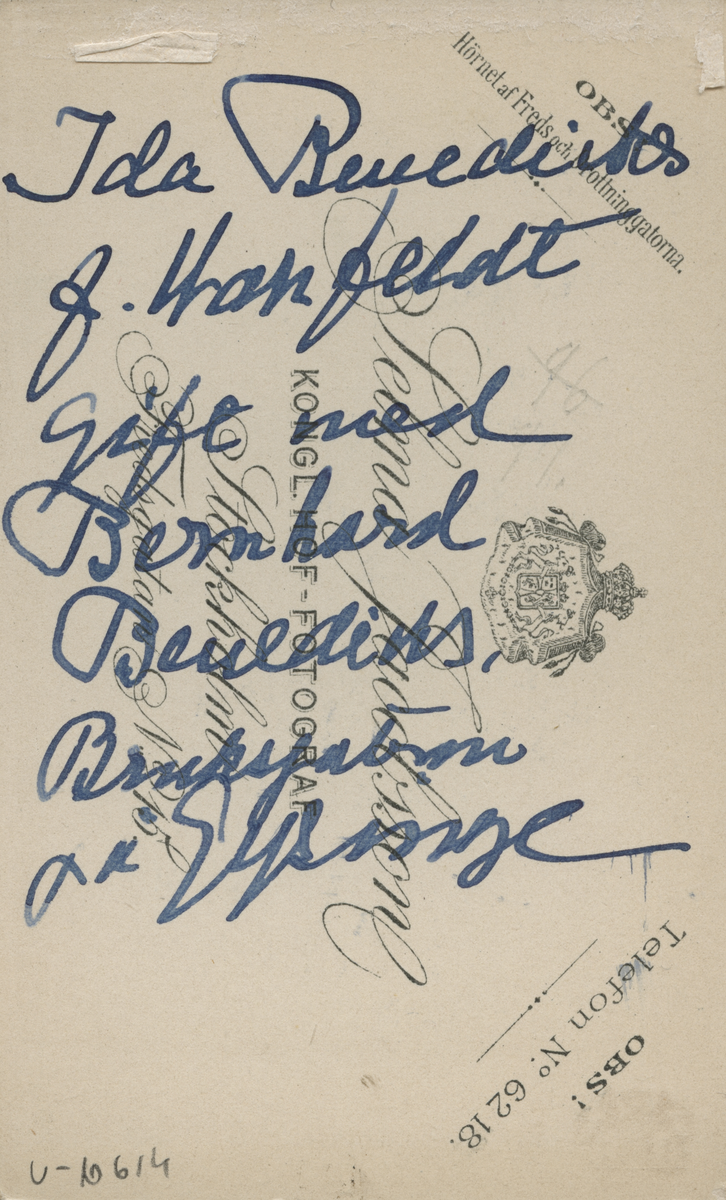 Ida Benedicks
f. Hohnfeldt
gift med
Bernhard
Benedicks,
Brukspatron
på Gysinge
OBS!
Hörnet af Freds och Drottninggatorna.
Selma Jacobsson
KONGL. HOF-FOTOGRAF
Stockholm
Fredsgatan No 15
Telefon No. 6218.
OBS!
96
71.
U-10614